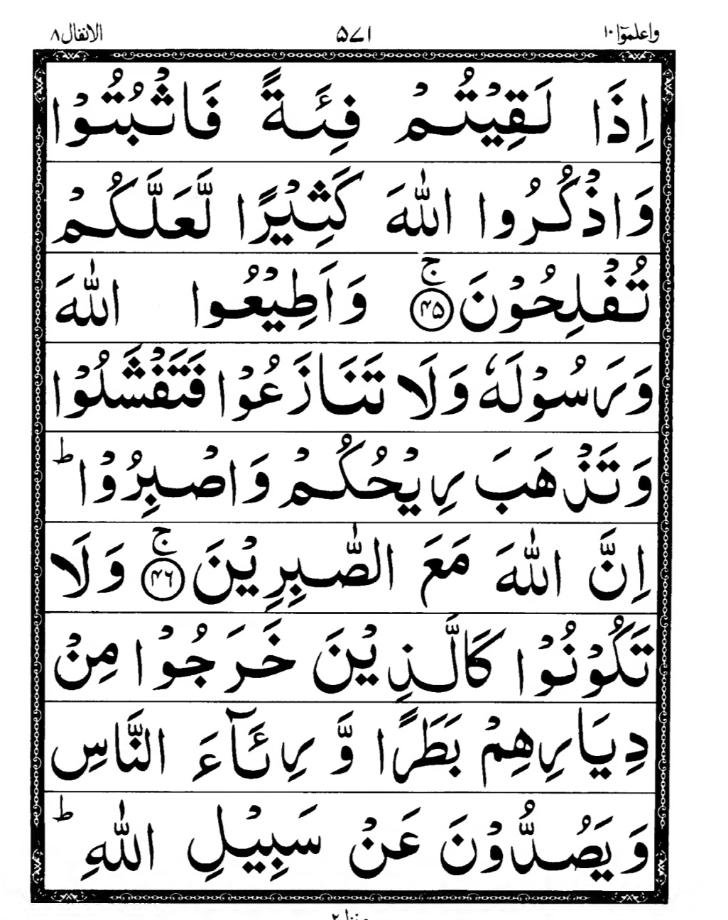 واعلموٓا ۱۰ ۵۷۱ الانفال ۸
اِذَا لَقِيْتُمْ فِئَةً فَاثْبُتُوْا
وَاذْكُرُوا اللّٰهَ كَثِيْرًا لَّعَلَّكُمْ
تُفْلِحُوْنَۚ ﴿۴۵﴾ وَاَطِيْعُوا اللّٰهَ
وَرَسُوْلَهٗ وَلَا تَنَازَعُوْا فَتَفْشَلُوْا
وَتَذْهَبَ رِيْحُكُمْ وَاصْبِرُوْاؕ
اِنَّ اللّٰهَ مَعَ الصّٰبِرِيْنَۚ ﴿۴۶﴾ وَلَا
تَكُوْنُوْا كَالَّذِيْنَ خَرَجُوْا مِنْ
دِيَارِهِمْ بَطَرًا وَّ رِئَآءَ النَّاسِ
وَيَصُدُّوْنَ عَنْ سَبِيْلِ اللّٰهِؕ
منزل ۲